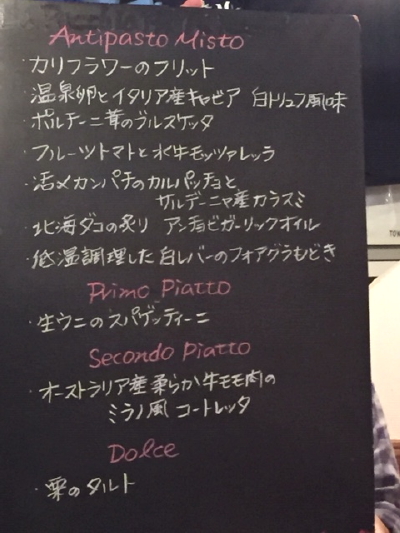 Antipasto Misto
・カリフラワーのフリット
・温泉卵とイタリア産キャビア 白トリュフ風味
・ポルチーニ茸のブルスケッタ
・フルーツトマトと水牛モッツァレッラ
・活〆カンパチのカルパッチョと
サルデーニャ産カラスミ
・北海ダコの炙り アンチョビガーリックオイル
・低温調理した白レバーのフォアグラもどき
Primo Piatto
・生ウニのスパゲッティーニ
Secondo Piatto
・オーストラリア産柔らか牛モモ肉の
ミラノ風 コートレッタ
Dolce
・栗のタルト